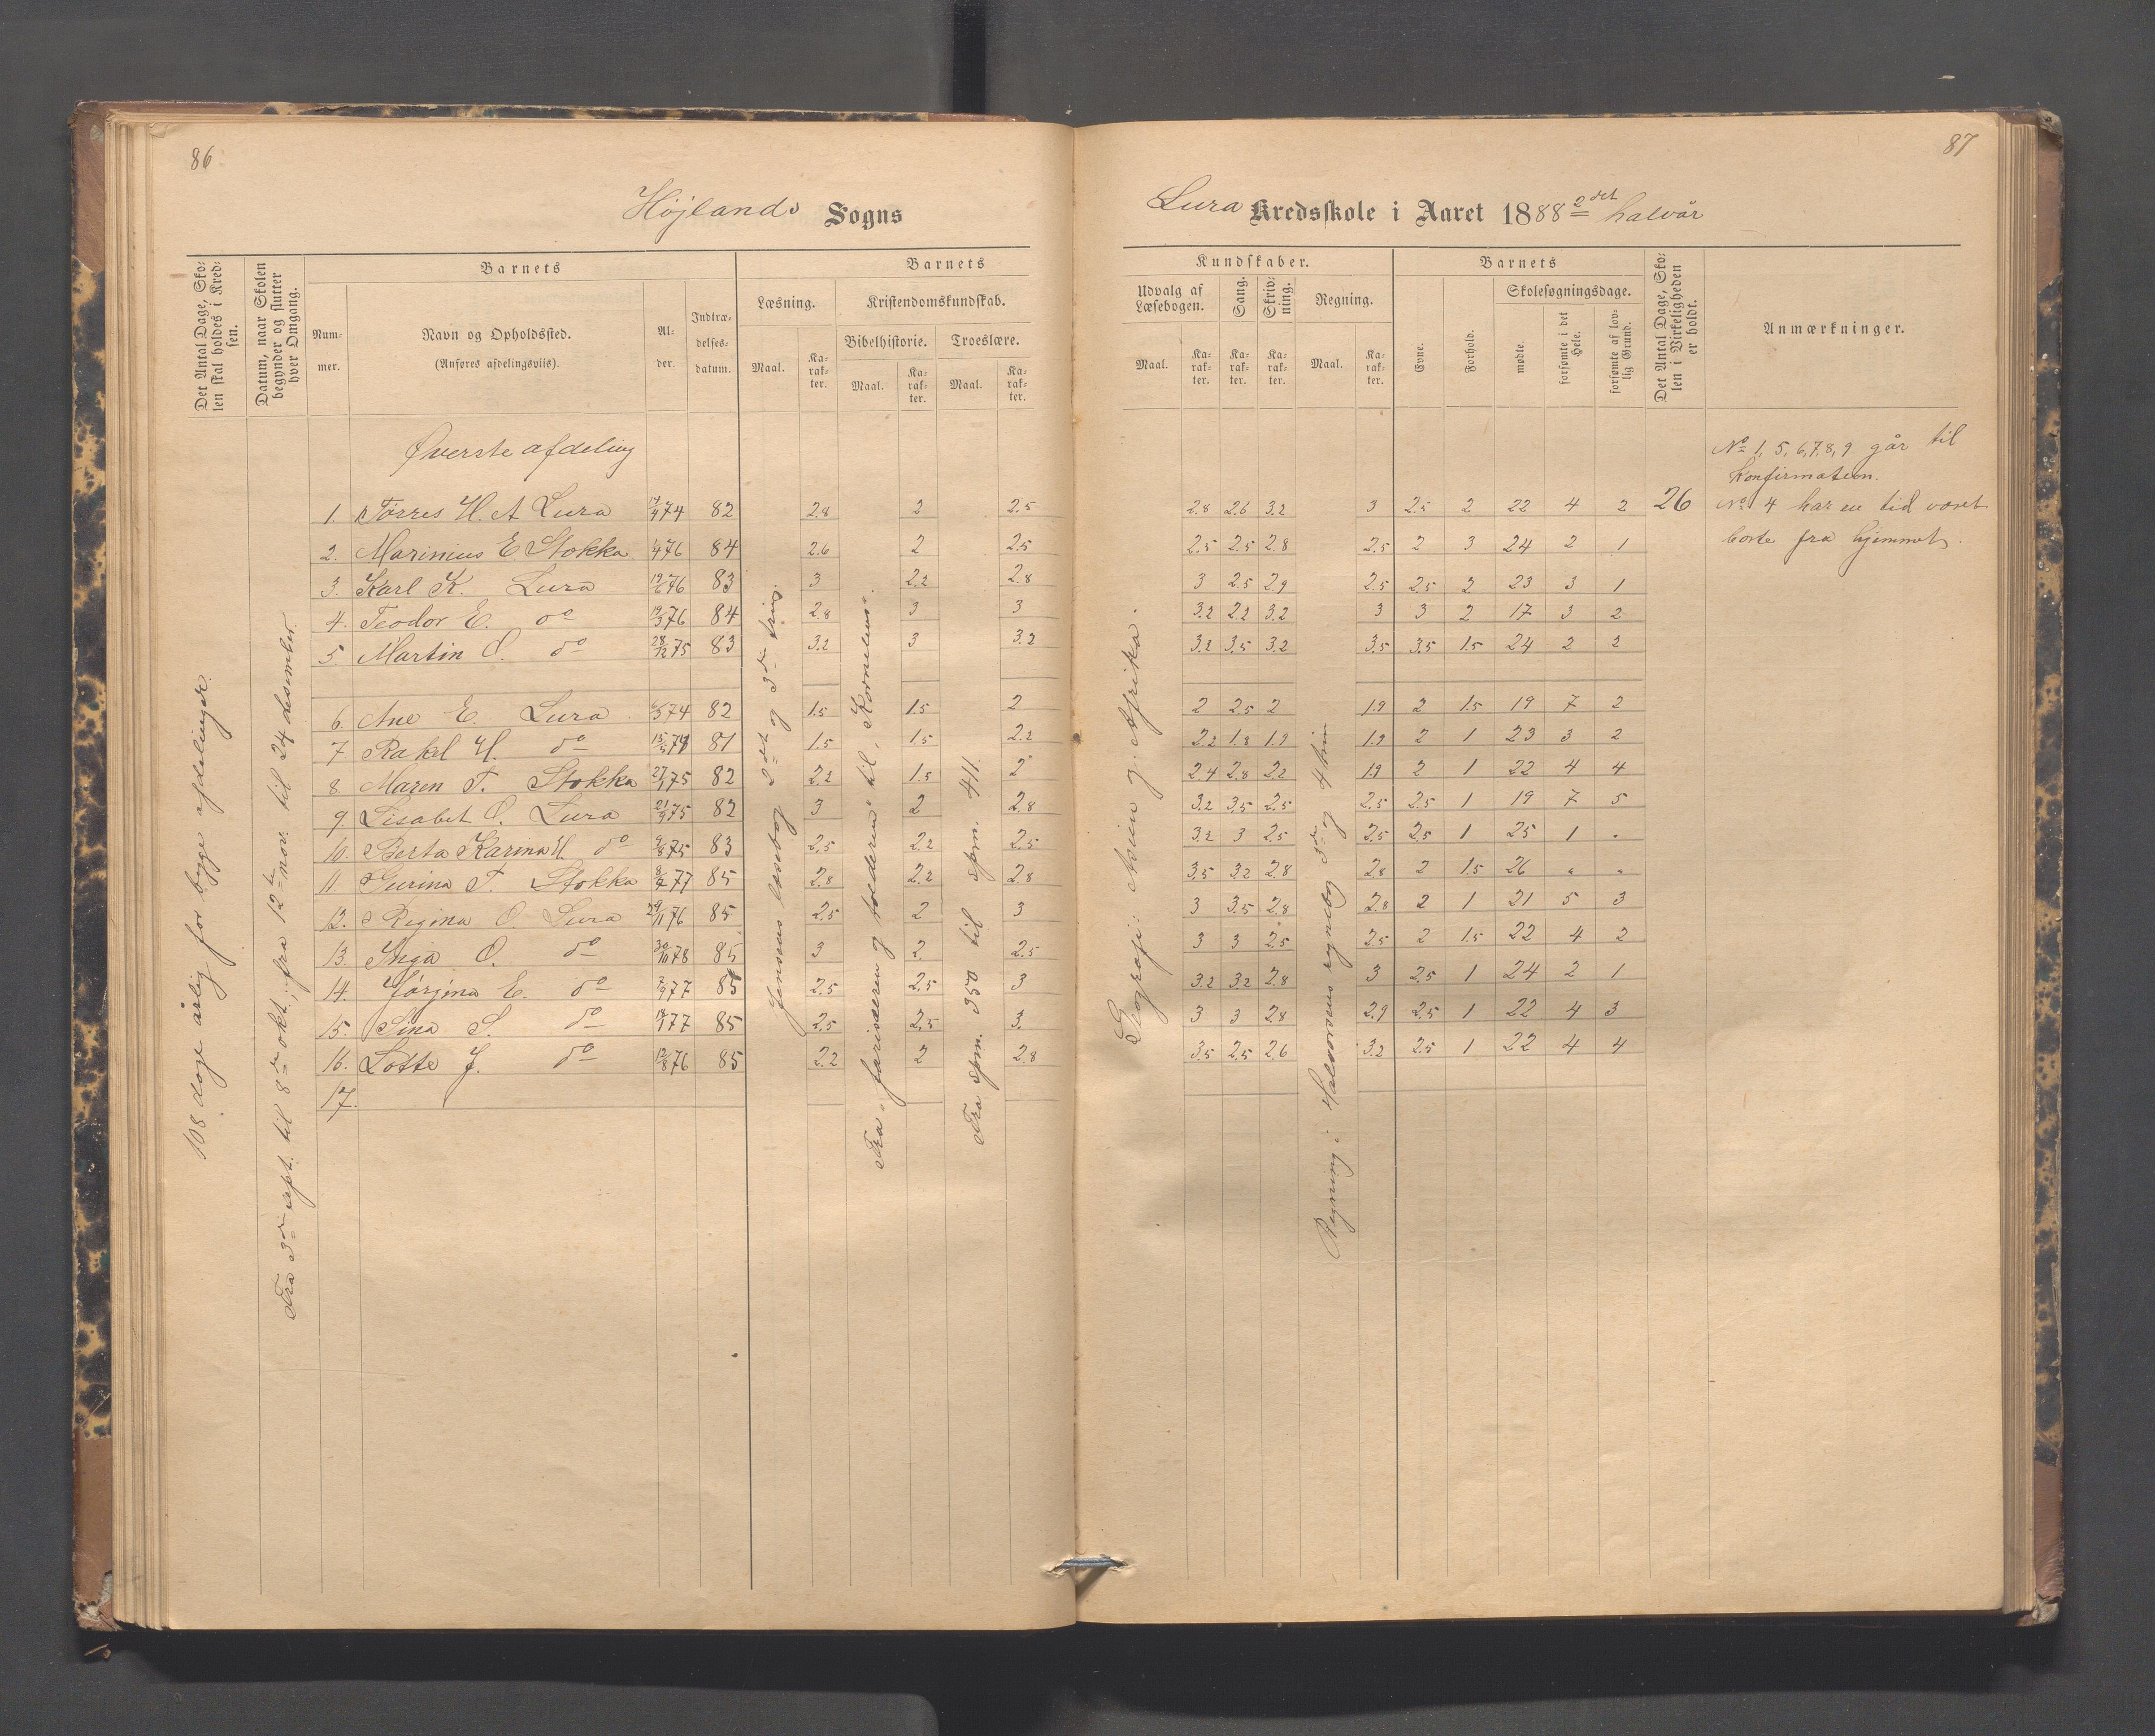 86
87
Højlands Sogns
Lura Kredsskole i Aaret 1888 2det halvår
Det Antal Dage, Skolen skal holdes i Kredsen.
Datum, naar Skolen begynder og slutter hver Omgang.
Barnets
Barnets
Nummer.
Navn og Opholdssted.
(Anføres afdelingsviis).
Alder.
Indtrædelsesdatum.
Læsning.
Kristendomskundskab.
Bibelhistorie.
Troeslære.
Maal.
Karakter.
Maal.
Karakter.
Maal.
Karakter.
Kundskaber.
Barnets
Udvalg af Læsebogen.
Sang.
Skrivning.
Regning.
Skolesøgningsdage.
Maal.
Karakter.
Karakter.
Karakter.
Maal.
Karakter.
Evne.
Forhold.
mødte.
forsømte i det Hele.
forsømte af lovlig Grund.
Det Antal Dage, Skolen i Virkeligheden er holdt.
Anmærkninger.
108 dage årlig for begge afdelinger.
Fra 3die sept. til 8de okt., fra 12te nov. til 24 desember.
Jensens læsebog 2det og 3die trin.
Fra "farisæeren og tolderen" til "Kornelius".
Fra spm. 350 til spm. 411.
Geografi: Asien og Afrika.
Regning: Halvorsens regnebog 3die og 4 trin
Øverste afdeling
No 1, 5, 6, 7, 8, 9 går til
Konfirmation.
No 4 har en tid været
borte fra hjemmet.
1. Tørres H. A Lura 74 82 2.8 2 2.5 2.8 2.6 3.2 3 2.5 2 22 4 2 26
2. Marinius E Stokka 76 84 2.6 2 2.5 2.5 2.5 2.8 2.5 2 3 24 2 1
3. Karl K. Lura 19/6 76 83 3 2.2 2.8 3 2.5 2.9 2.5 2.5 2 23 3 1
4. Teodor E. do 19/3 76 84 2.8 3 3 3.2 2.2 3.2 3 3 2 17 3 2
5. Martin O. do 28/12 75 83 3.2 3 3.2 3.2 3.5 3.2 3.5 3.5 1.5 24 2 2
6. Ane E. Lura 74 82 1.5 1.5 2 2 2.5 2 1.9 2 1.5 19 7 2
7 Rakel H. do 81 1.5 1.5 2.2 2.2 1.8 1.9 1.9 2 1 23 3 2
8 Maren T. Stokka 75 82 2.2 1.5 2 2.4 2.8 2.2 1.9 2 1 22 4 4
9. Lisabet O. Lura 21/9 75 82 3 2 2.8 3.2 3.5 2.5 2.5 2.5 1 19 7 5
10. Berta Karina H do 9/8 75 83 2.5 2.2 2.5 3.2 3 2.5 2.5 2.5 1 25 1 "
11. Gurina T. Stokka 77 85 2.8 2.2 2.8 3.5 3.2 2.8 2.8 2 1.5 26 " "
12. Regina O. Lura 29/11 76 85 2.5 2 3 3 3.5 2.8 2.8 2 1 21 5 3
13. Inga O. do 30/10 78 85 3 2 2.5 3 3 2.5 2.5 2 1.5 22 4 2
14. Jørgina E. do 77 85 2.5 2.5 3 3.2 3.2 2.8 3 2.5 1 24 2 1
15. Sina S. do 77 85 2.5 2.5 3. 3 3 2.8 2.9 2.5 1 22 4 3
16. Lotte J. do 12/8 76 85 2.2 2 2.8 3.5 2.5 2.6 3.2 2.5 1 22 4 4
17.